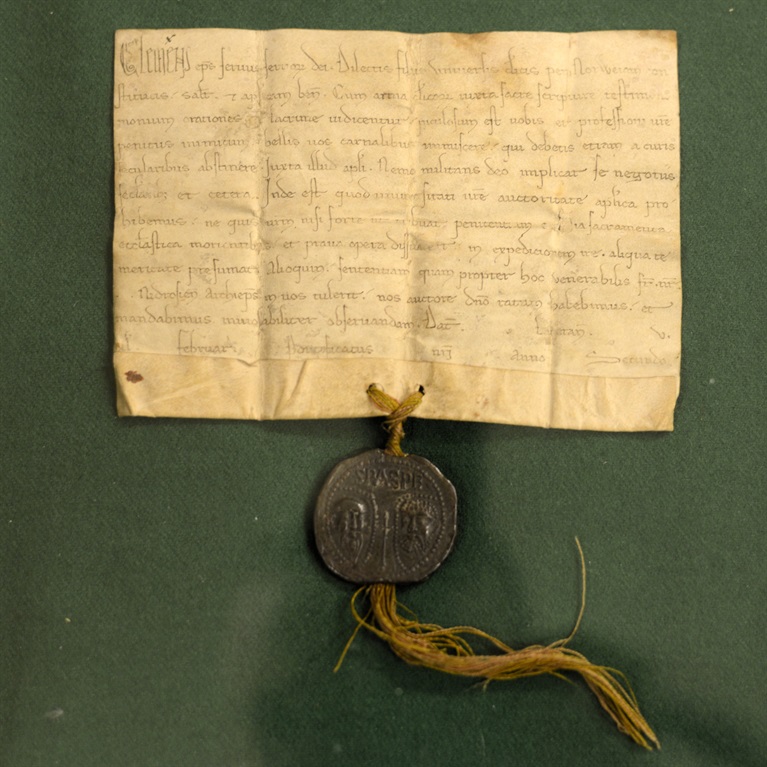 Clemens eps servus servor dei. Dilectis filiis universis clicis per Norweiam con
stitutis. salt. et aplicam ben. Cum arma clicor iuxta sacre scripture testimo
monium orationes et lacrime iudicentur periculosum est vobis et professioni vre
penitus inimicum bellis vos carnalibus inmiscere. qui debetis etiam a curis
secularibus abstinere. Iuxta illud apli. Nemo militans deo implicat se negotiis
seclarib; et cetera. Inde est quod universitati vre auctoritate aplica pro
hibemus. ne quis nisi forte tribuat penitentiam et sacramenta
ecclesiastica morientibus et prava opera dissuadeat. in expeditionem ire. aliqua te
meritate presumat. Alioquin sententiam quam propter hoc venerabilis fr. nr.
. Nidrosien Archieps in vos tulerit. nos auctore dno ratam habebimus. et
mandabimus inviolabiliter observandam. Dat. Lateran. v.
kl februarii Pontificatus nri Anno Secundo
SPASPE